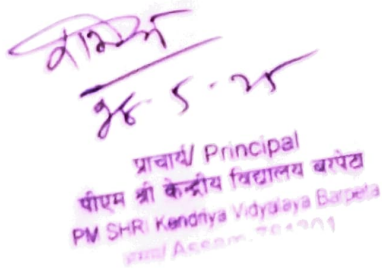 5.25
प्राचार्य/ Principal
पीएम श्री केन्द्रीय विद्यालय बरपेटा
PM SHRI Kendriya Vidyalaya Barpeta
असम/ Assam-781301